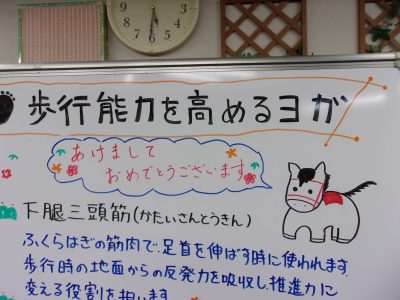 歩行能力を高めるヨガ
あけまして
おめでとうございます
下腿三頭筋(かたいさんとうきん)
ふくらはぎの筋肉で、足首を伸ばす時に使われます。
歩行時の地面からの反発力を吸収し、推進力に
変える役割を担います